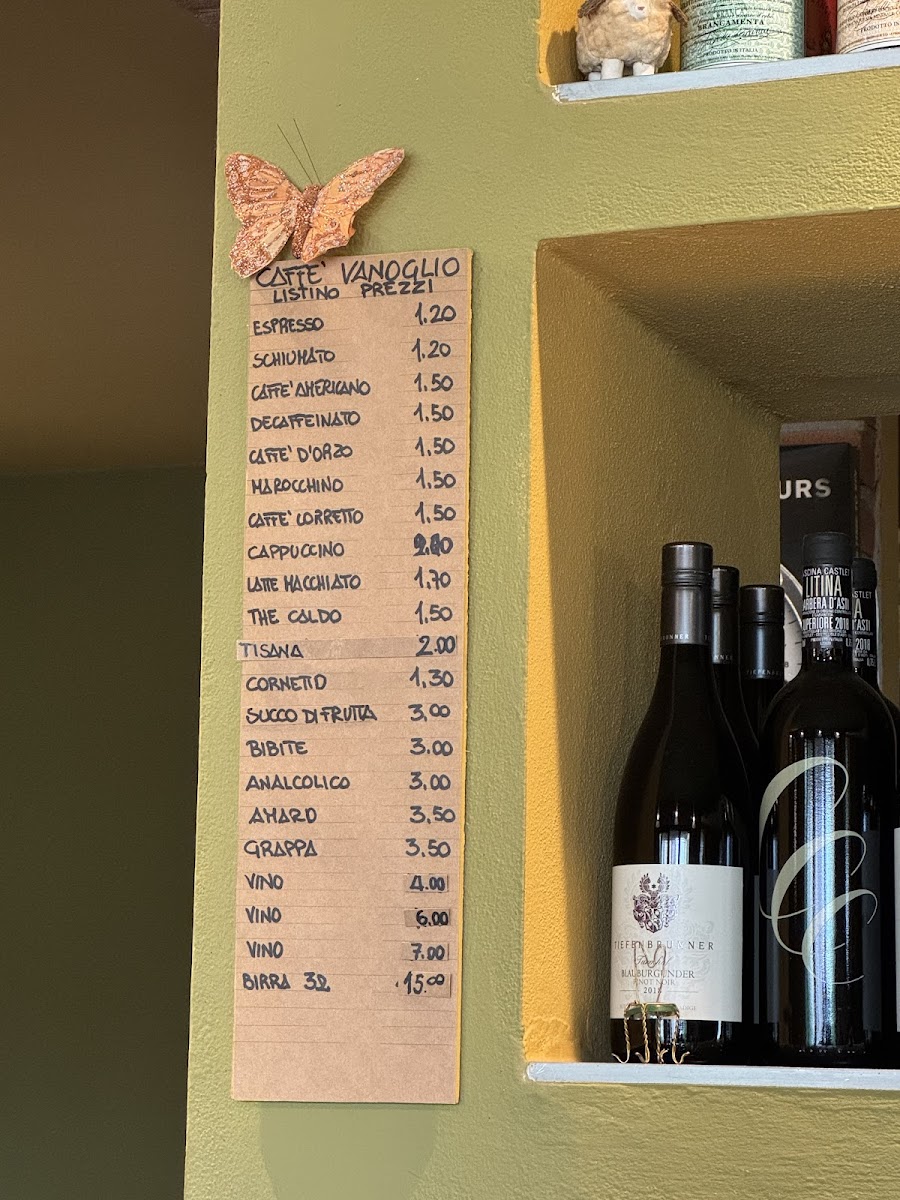 BRANCAMENTA
CAFFE' VANOGLIO
LISTINO PREZZI
ESPRESSO 1.20
SCHIUMATO 1.20
CAFFE' AMERICANO 1.50
DECAFFEINATO 1.50
CAFFE' D'ORZO 1.50
MAROCCHINO 1.50
CAFFE' CORRETTO 1.50
CAPPUCCINO
LATTE MACCHIATO 1.70
THE CALDO 1.50
TISANA 2.00
CORNETTO 1,30
SUCCO DI FRUTTA 3,00
BIBITE 3.00
ANALCOLICO 3.00
AMARO 3,50
GRAPPA 3.50
VINO 4.00
VINO 6.00
VINO 7.00
BIRRA 3l 15.00
URS
SCINA CASTLET
LITINA
BARBERA D'ASTI
SUPERIORE 2018
TIEFENBRUNNER
BLAUBURGUNDER
PINOT NOIR